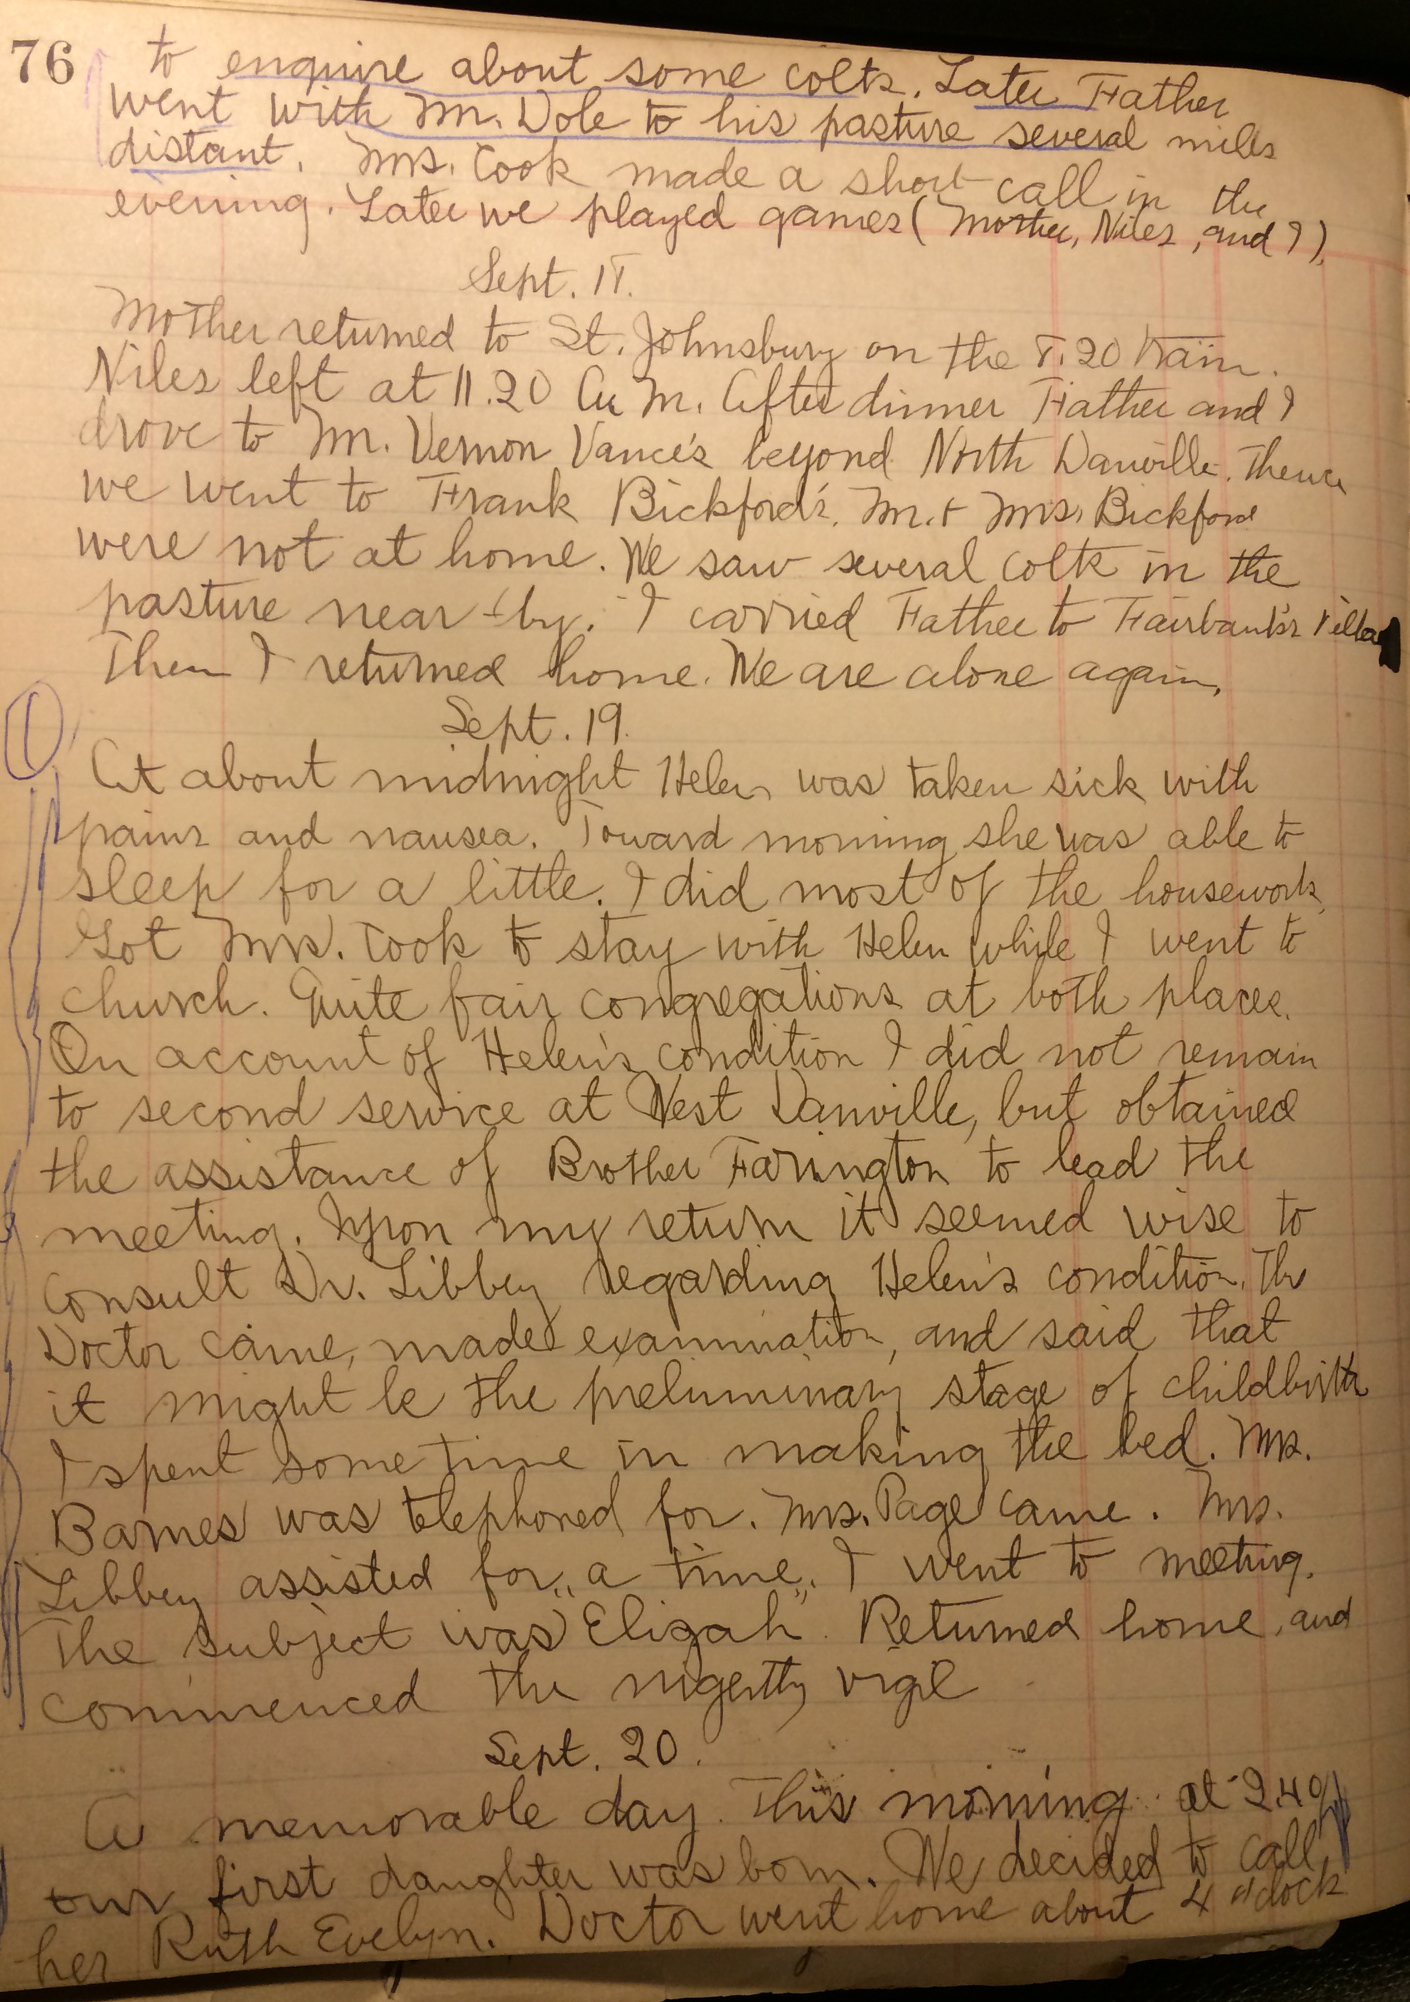 76
to enquire about some colts. Later Father
went with Mr. Dole to his pasture several miles
distant. Mrs. Cook made a short call in the
evening. Later we played games (Mother, Niles, and I).
Sept. 18.
Mother returned to St. Johnsbury on the 8.20 train.
Niles left at 11.20 A. M. After dinner Father and I
drove to Mr. Vernon Vance's beyond North Danville. Thence
we went to Frank Bickford's. Mr. + Mrs. Bickford
were not at home. We saw several colts in the
pasture near-by. I carried Father to Fairbank's Village
Then I returned home. We are alone again.
Sept. 19.
1
At about midnight Helen was taken sick with
pains and nausea. Toward morning she was able to
sleep for a little. I did most of the housework.
Got Mrs. Cook to stay with Helen while I went to
church. Quite fair congregations at both places.
On account of Helen's condition I did not remain
to second service at West Danville, but obtained
the assistance of Brother Farrington to lead the
meeting. Upon my return it seemed wise to
consult Dr. Libbey regarding Helen's condition. The
Doctor came, made examination, and said that
it might be the preliminary stage of childbirth
I spent some time in making the bed. Mrs.
Barnes was telephoned for. Mrs. Page came. Mrs.
Libbey assisted for a time. I went to meeting.
The subject was "Elijah". Returned home, and
commenced the nightly vigil
Sept. 20.
A memorable day. This morning at 2.40
our first daughter was born. We decided to call
her Ruth Evelyn. Doctor went home about 4 o'clock